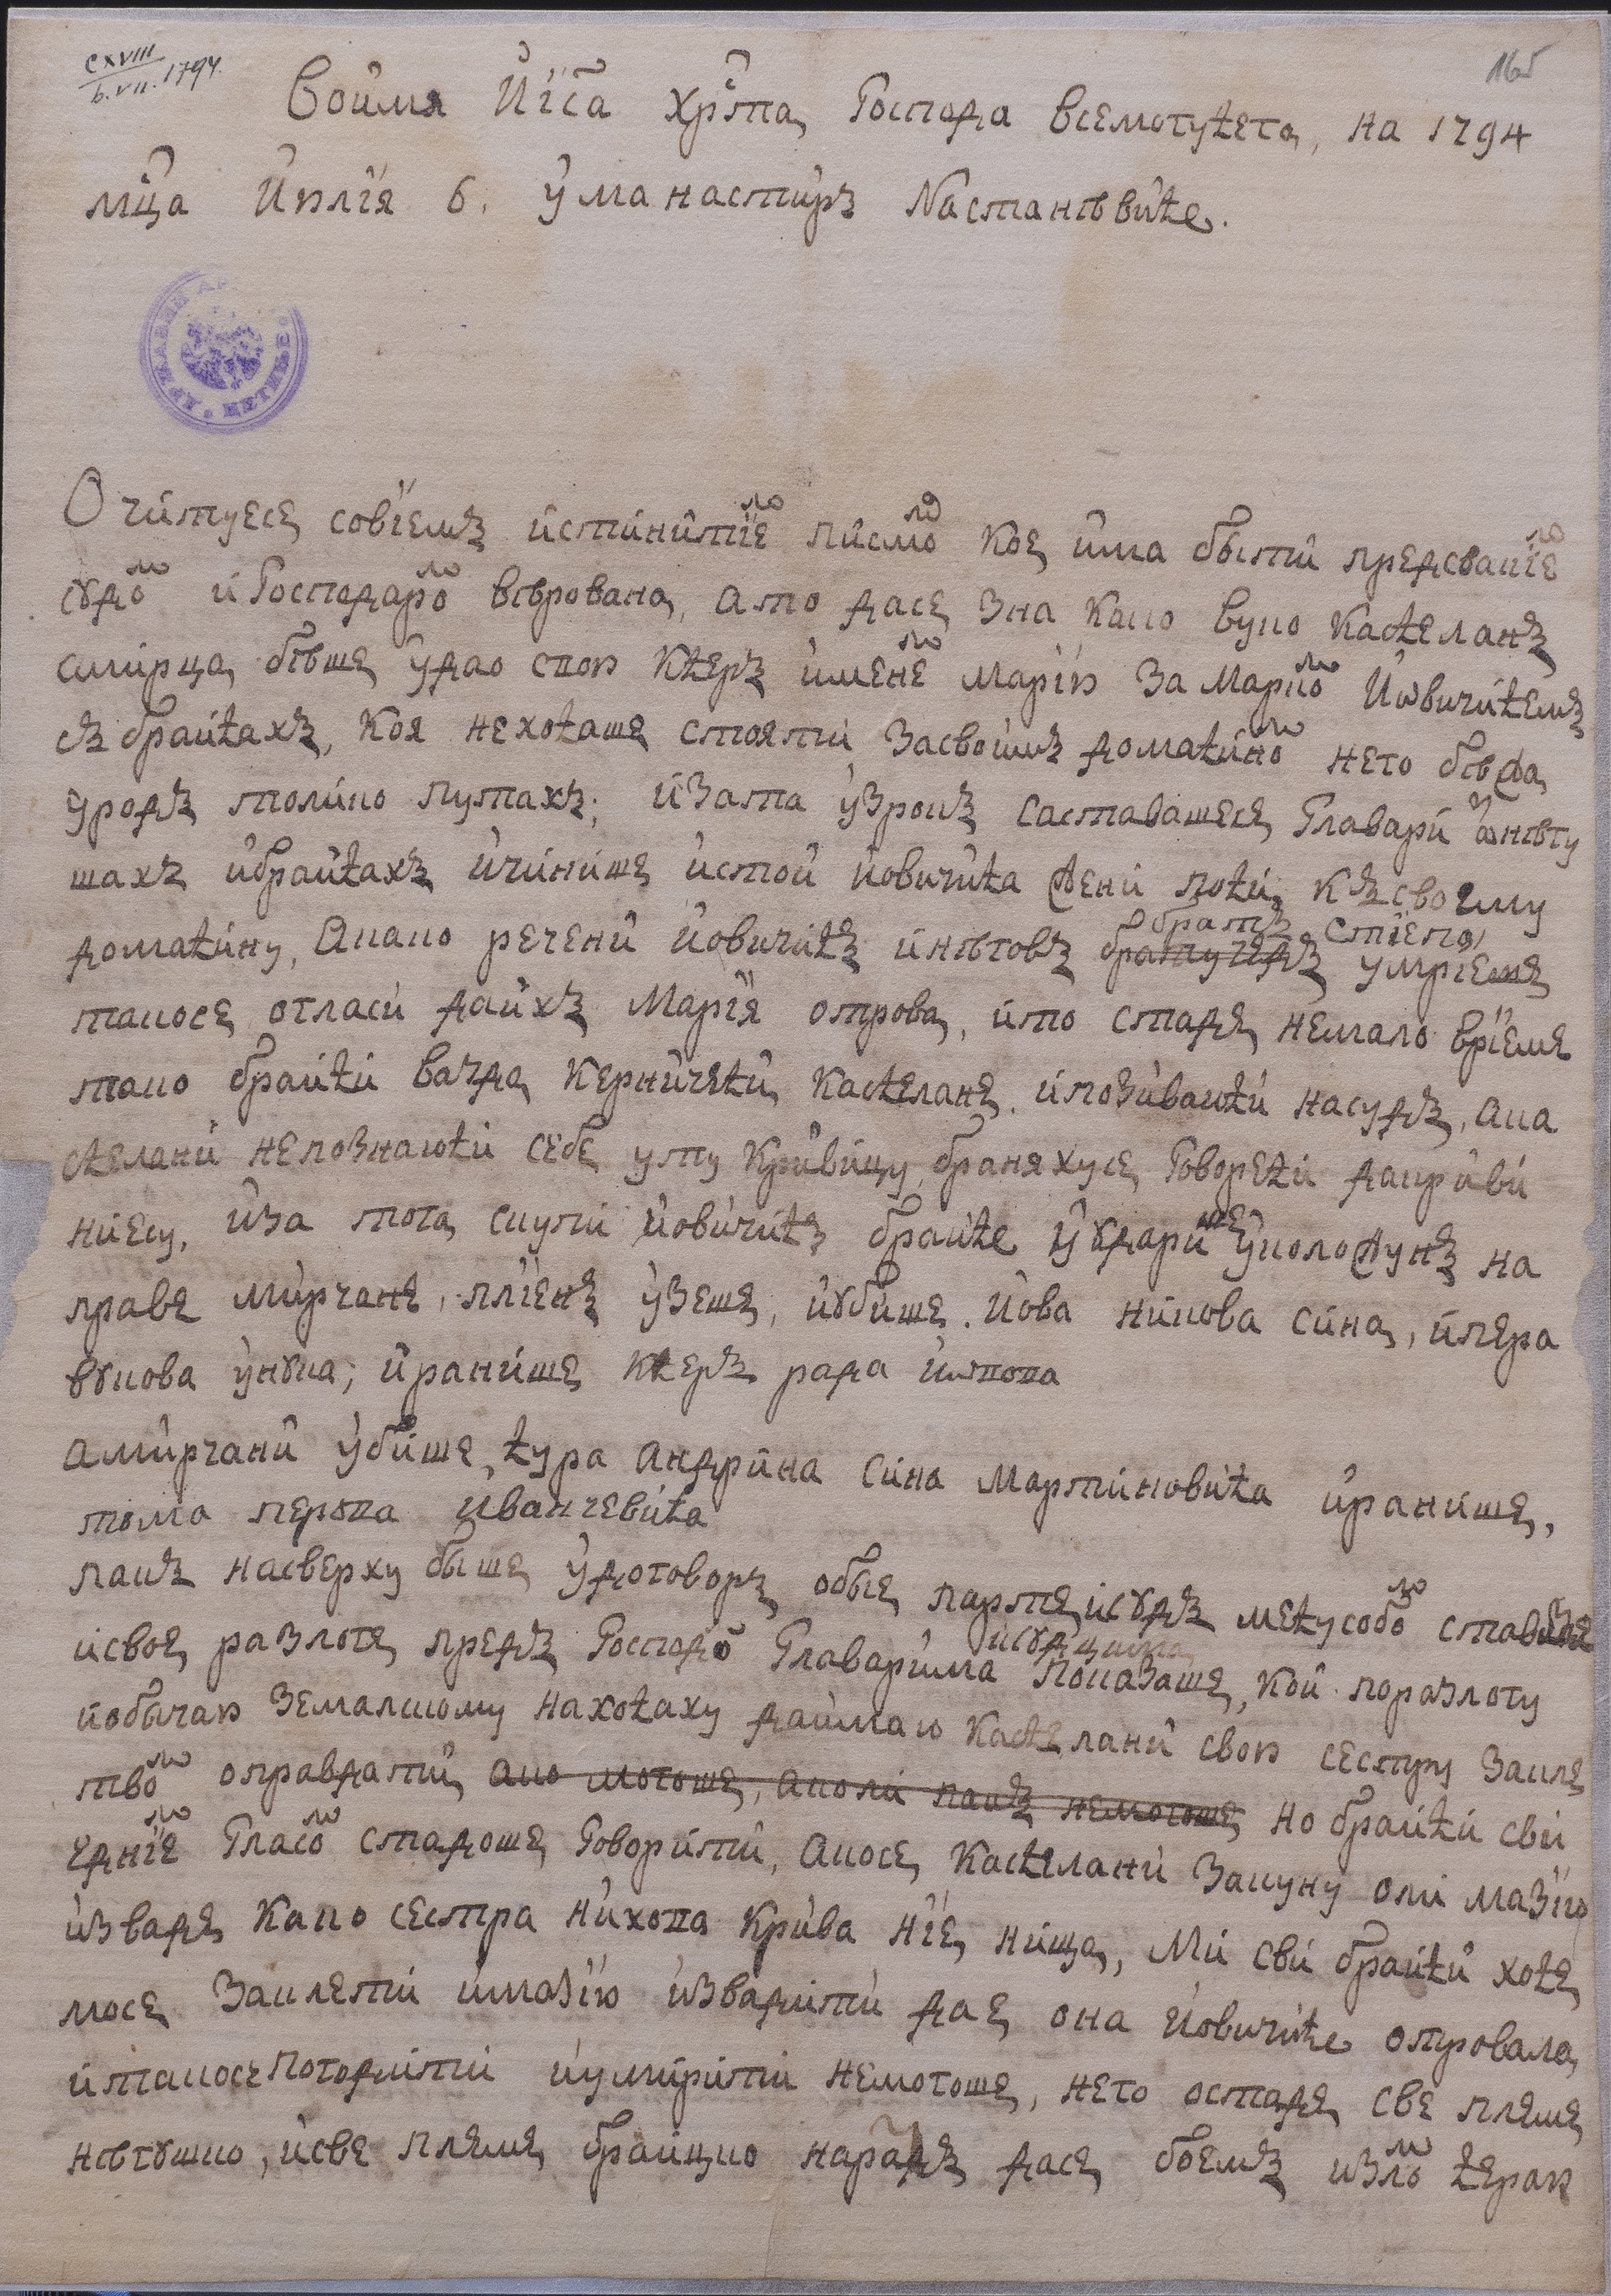 CXVIII
6.VII.1794.
165
Воимя Иіса хрⷭ҇та, Господа всемогућега, на 1794
мⷭ҇ца Июліа 6. у манастирꙋ Nастанѣвиће.
О читуесе совіемъ истинитіеⷨ писмоⷨ кое има быти предсвакіеⷨ
сꙋдоⷨ и Господароⷨ вѣровано, ато дасе зна како вуко Кађеланъ
смирца, бѣше удао свою кћеръ именеⷨ Марію за Маркоⷨ Иѡвичићемъ
съ браићахъ, коя нехоћаше стояти, засвоимъ домаћиноⷨ него бѣђа,
уродъ толико путахъ; изата узрокъ саставашесе, Главари ѡⷥ нѣгу
шахъ ибраићахъ ичинише истой иовичића ђени поћи, къ своему
домаћину, Анако речени иовичићъ инѣговъ братучедъ братъ Стіепо, умріеше
такосе огласи даихъ Марія отрова, ито стаде, немало вріеме
тако браићи вазда, кериичећи, Кађелане, ипозиваюћи насудъ, ака
ђелани непознаюћи себе уту Кривицу, браняхусе, Говорећи дакриви
ниесу, иза тога, скупи иовичићъ браиће иꙋдарише уколођунъ на
праве мирчане, пліенъ узеше, иꙋбише. Иова никова сина, ипера
вꙋкова унꙋка; иранише кћеръ рада ивтова
Амирчани убише, ћура Андрина сина мартиновића иранише,
тома перова Иванчевића
пакъ насверху быше, удоговоръ обые, парте, исꙋдъ међусобоⷨ ставише
исвое, разлоге, предъ Господоⷨ Главарима исꙋдцима показаше, кои поразлогу
иобычаю земалскому нахоћаху даимаю Кађелани свою сестру закле
твоⷨ оправдати, ако могоше, аколи пакъ немогоше, но браићи сви
едніеⷨ Гласоⷨ стадоше, Говорити, акосе, Кађелани закуну али мазію
изваде, како сестра нихова крива ніе, ница, Ми сви браићи хоће
мосе заклети имазію извадити дае, она Иовичиће отровала,
итакосе погодити иумирити немогоше, него остаде, све племе,
нѣгꙋшко, исве племе браицко народъ дасе боемъ изълоⷨ ћераю